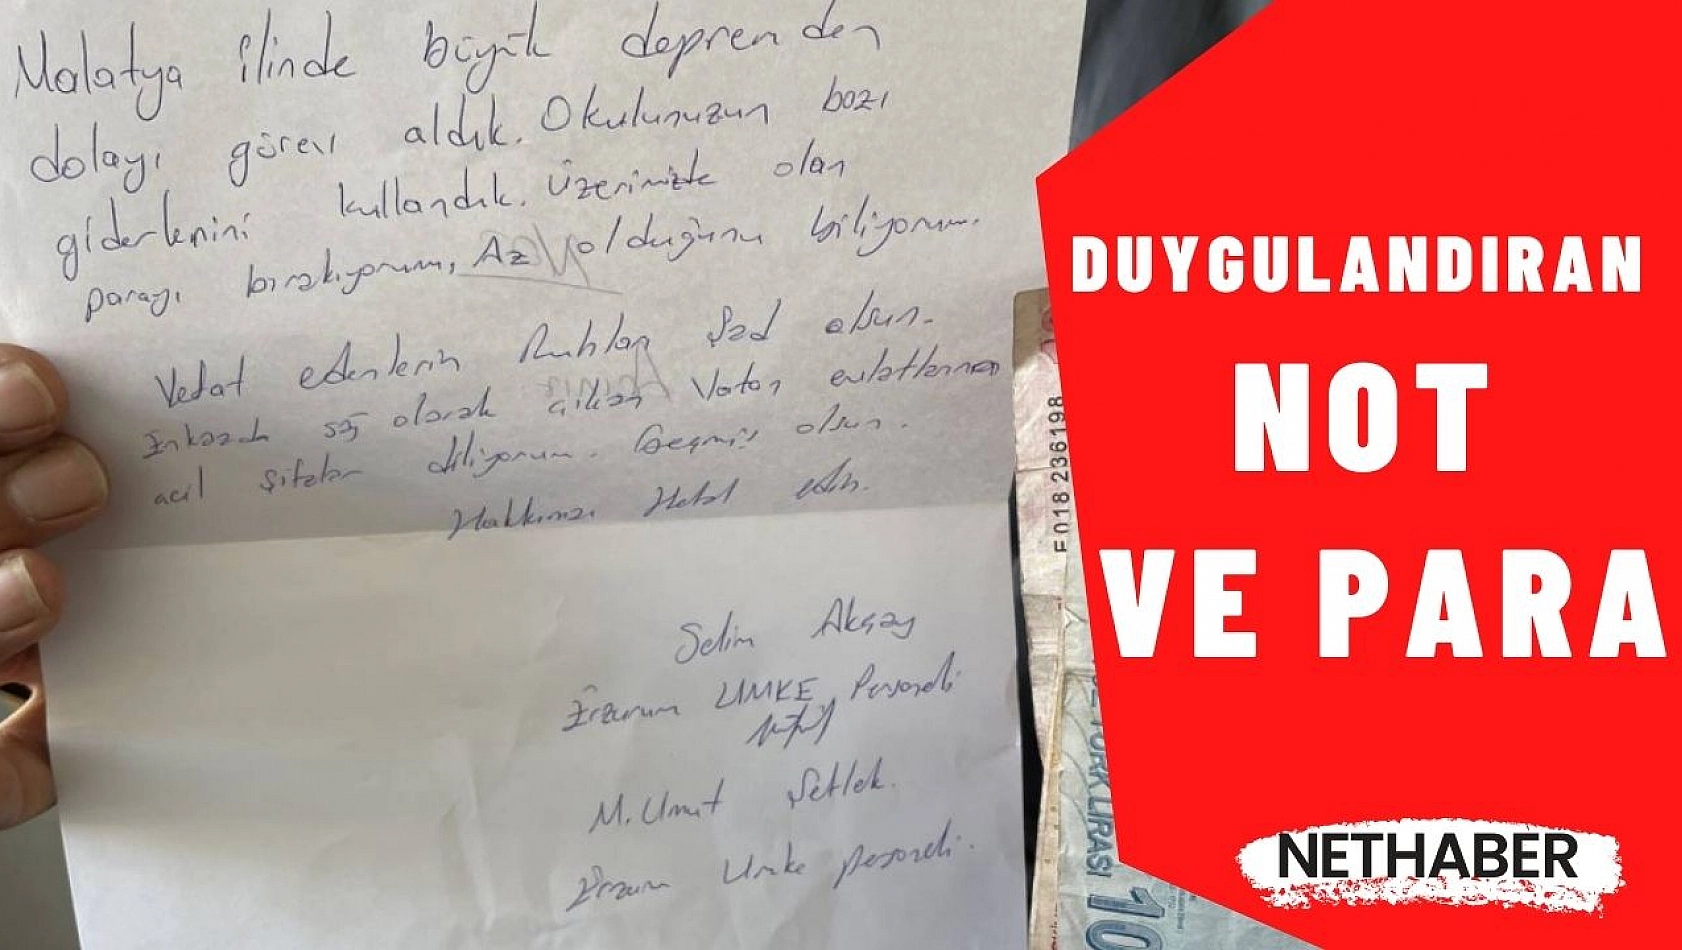 Malatya ilinde büyük depremden
dolayı görev aldık. Okulunuzun bazı
giderlerini kullandık. Üzerimizde olan
parayı bırakıyorum, Az olduğunu biliyorum.
Vefat edenlerin Ruhları Şad olsun.
Enkazda sağ olarak çıkan Vatan evlatlarına
acil şifalar diliyorum. Geçmiş olsun.
Hakkınızı Helal edin.
Selim Akçay
Erzurum UMKE Personeli
M. Umut
Erzurum Umke personeli.
F018 236198
TÜRK LİRASI
10
DUYGULANDIRAN
NOT
VE PARA
NETHABER